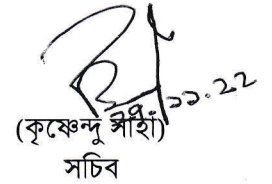 ২৯.১১.২২
(কৃষ্ণেন্দু সাহা)
সচিব